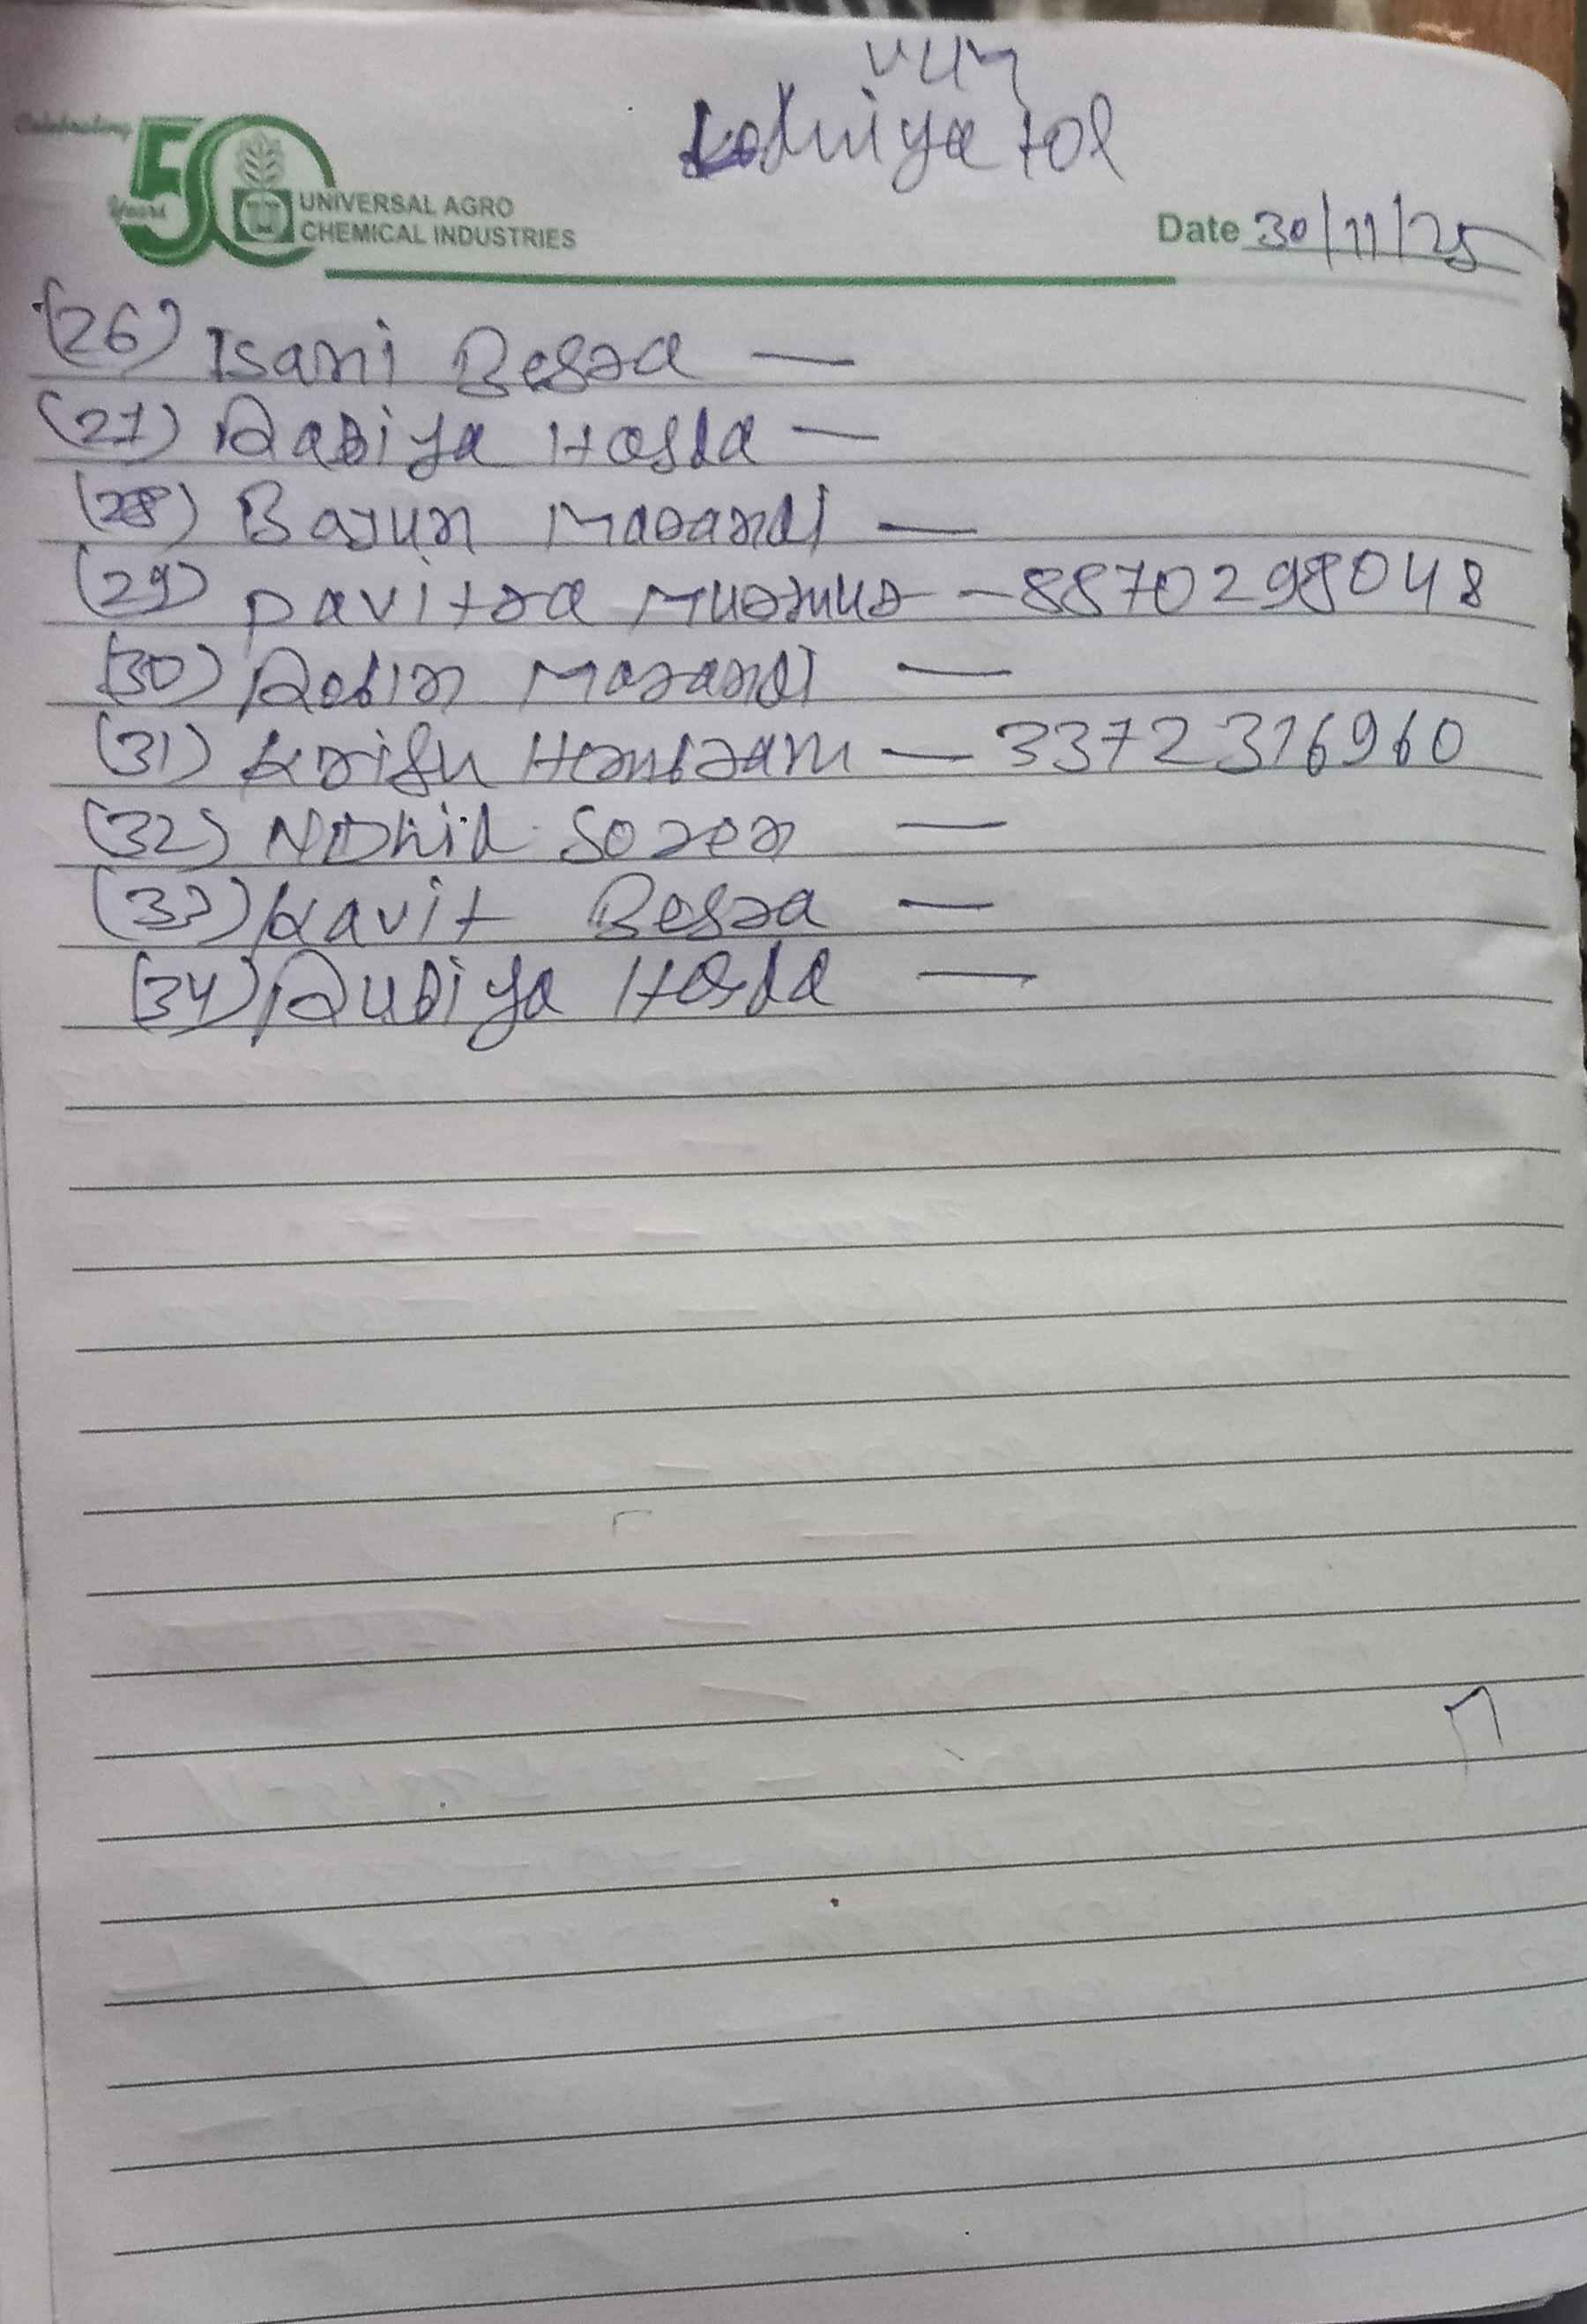 vill
Kodmiya tol
Celebrating
50
Years
UNIVERSAL AGRO
CHEMICAL INDUSTRIES
Date 30/11/25
(26) Isani Besra —
(27) Rabiya Hosda —
(28) Bajun Marandi —
(29) Pavitra Murmur - 8870298048
(30) Robin Marandi —
(31) Krisu Hembram — 3372316960
(32) Soren —
(33) Kavit Besra —
(34) Rubiya Hosda —